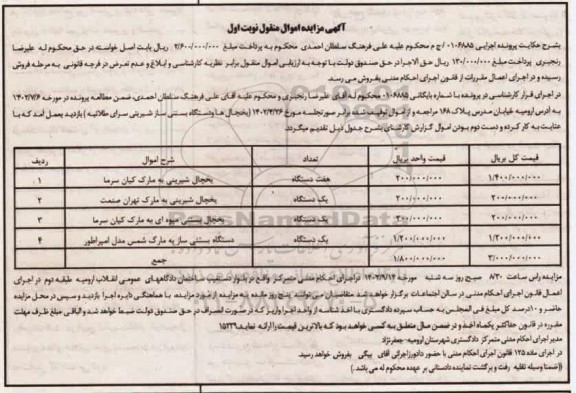 آگهی مزایده اموال منقول نوبت اول
بشرح حکایت پرونده اجرایی ۰۱۰۶۸۸۵/ج م محکوم علیه علی فرهنگ سلطان احمدی محکوم به پرداخت مبلغ ۲/۶۰۰/۰۰۰/۰۰۰ ریال بابت اصل خواسته در حق محکوم له علیرضا
رنجبری پرداخت مبلغ ۱۳۰/۰۰۰/۰۰۰ ریال حق الاجرا در حق صندوق دولت با توجه به ارزیابی اموال منقول برابر نظریه کارشناسی و ابلاغ و عدم تعرض در فرجه قانونی به مرحله فروش
رسیده و در اجرای اعمال مقررات از قانون اجرای احکام مدنی بفروش می رسد.
در اجرای قرار کارشناسی در پرونده با شماره بایگانی ۰۱۰۶۸۸۵ محکوم له آقای علیرضا رنجبری و محکوم علیه آقای علی فرهنگ سلطان احمدی، ضمن مطالعه پرونده در مورخه ۱۴۰۲/۷/۶
به آدرس ارومیه خیابان مدرس پلاک ۱۶۸ مراجعه و از اموال توقیف شده برابر صورتجلسه مورخ ۱۴۰۲/۲/۲۶ (یخچال ها و دستگاه بستنی ساز شیرینی سرای طلائیه) بازدید بعمل آمد که با
عنایت به کارکرده و دست دوم بودن اموال گزارش کارشناسی بشرح جدول ذیل تقدیم میگردد.
ردیف شرح اموال تعداد قیمت واحد بریال قیمت کل بریال
۱ یخچال شیرینی به مارک کیان سرما هفت دستگاه ۲۰۰/۰۰۰/۰۰۰ ۱/۴۰۰/۰۰۰/۰۰۰
۲ یخچال شیرینی به مارک تهران صنعت یک دستگاه ۲۰۰/۰۰۰/۰۰۰ ۲۰۰/۰۰۰/۰۰۰
۳ یخچال بستنی میوه ای به مارک کیان سرما یک دستگاه ۲۰۰/۰۰۰/۰۰۰ ۲۰۰/۰۰۰/۰۰۰
۴ دستگاه بستنی ساز به مارک شمس مدل امپراطور یک دستگاه ۱/۲۰۰/۰۰۰/۰۰۰ ۱/۲۰۰/۰۰۰/۰۰۰
جمع ۱/۸۰۰/۰۰۰/۰۰۰ ۳/۰۰۰/۰۰۰/۰۰۰
مزایده راس ساعت ۸/۳۰ صبح روز سه شنبه مورخه ۱۴۰۲/۹/۱۴ در اجرای احکام مدنی متمرکز واقع در بلوار ساختمان دادگاههای عمومی انقلاب ارومیه طبقه دوم در اجرای
اعمال قانون اجرای احکام مدنی در سالن اجتماعات برگزار خواهد شد متقاضیان می توانند پنج روز مانده به مزایده از مورد مزایده، با هماهنگی دایره اجرا بازدید و سپس در محل مزایده
حاضر و ۱۰درصد کل مبلغ فی المجلس به حساب سپرده دادگستری با اخذ شناسه از واحد اجرا واریز که در صورت انصراف در حق صندوق دولت ضبط خواهد شد و الباقی مبلغ ظرف مهلت
مقرره در قانون حداکثر یکماه اخذ و در ضمن مال متعلق به کسی خواهد بود که بالاترین قیمت را ارائه نماید ۱۵۲۲۹
مدیر اجرای احکام مدنی متمرکز دادگستری شهرستان ارومیه-جعفرنژاد
در اجرای ماده ۱۲۵ قانون اجرای احکام مدنی با حضور دادورز اجرائی آقای بیگی بفروش خواهد رسید.
((ضمنا وسیله نقلیه رفت و برگشت نماینده دادستانی بر عهده محکوم له می باشد.)